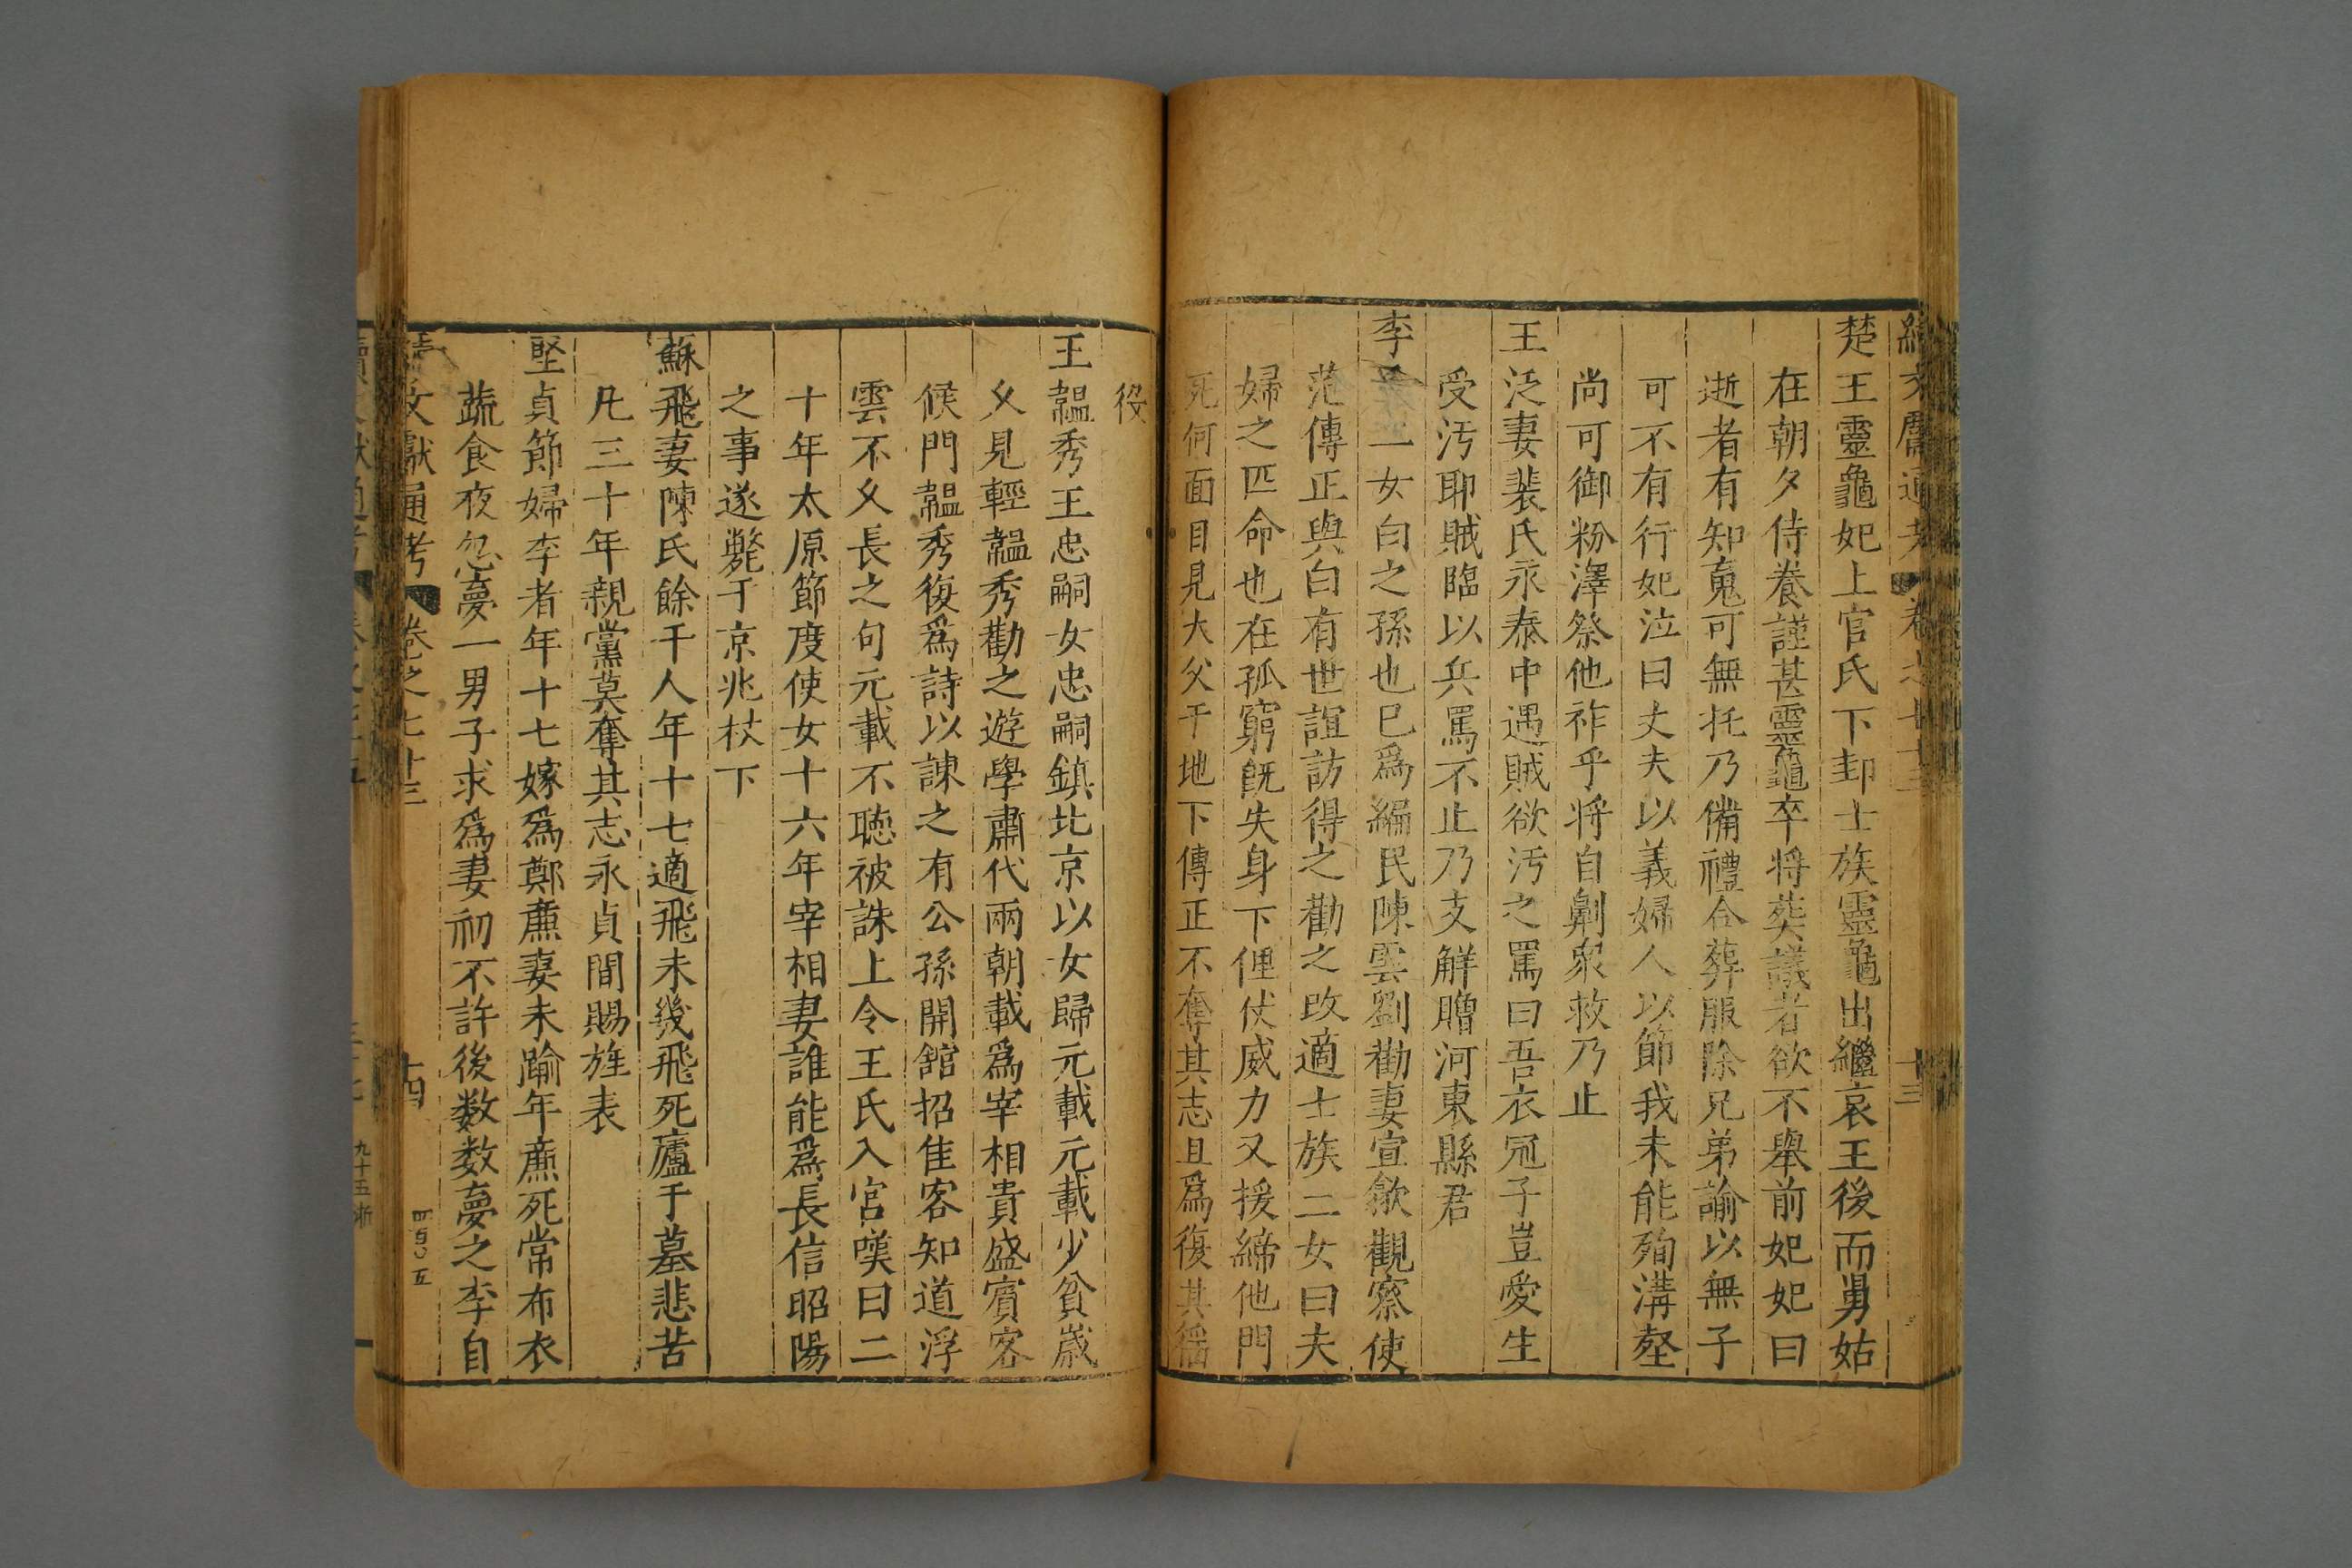 續文獻通考 卷之七十三 十三
楚王靈龜妃上官氏下邽士族靈龜出繼哀王後而舅姑
在朝夕侍養謹甚靈龜卒將葬議者欲不舉前妃妃曰
逝者有知䰟可無托乃備禮合葬服除兄弟諭以無子
可不有行妃泣曰丈夫以義婦人以節我未能殉溝壑
尚可御粉澤祭他祚乎將自劓衆救乃止
王泛妻裴氏永泰中遇賊欲汚之罵曰吾衣冠子豈愛生
受汚耶賊臨以兵罵不止乃支解贈河東縣君
李 一女白之孫也已爲編民陳雲劉勸妻宣歙觀察使
范傳正與白有世誼訪得之勸之改適士族二女曰夫
婦之匹命也在孤窮旣失身下俚仗威力又援締他門
死何面目見大父于地下傳正不奪其志且爲復其徭
役
王韞秀王忠嗣女忠嗣鎮北京以女歸元載元載少貧歲
久見輕韞秀勸之遊學肅代兩朝載爲宰相貴盛賓客
候門韞秀復爲詩以諌之有公孫開舘招隹客知道浮
雲不久長之句元載不聴被誅上令王氏入宮嘆曰二
十年太原節度使女十六年宰相妻誰能爲長信昭陽
之事遂斃于京兆杖下
蘇飛妻陳氏餘干人年十七適飛未幾飛死廬于墓悲苦
凡三十年親黨莫奪其志永貞間賜旌表
堅貞節婦李者年十七嫁爲鄭㢘妻未踰年㢘死常布衣
蔬食夜忽夢一男子求爲妻初不許後數數夢之李自
續文獻通考 卷之七十三 十四 四百〇五
九十五浙